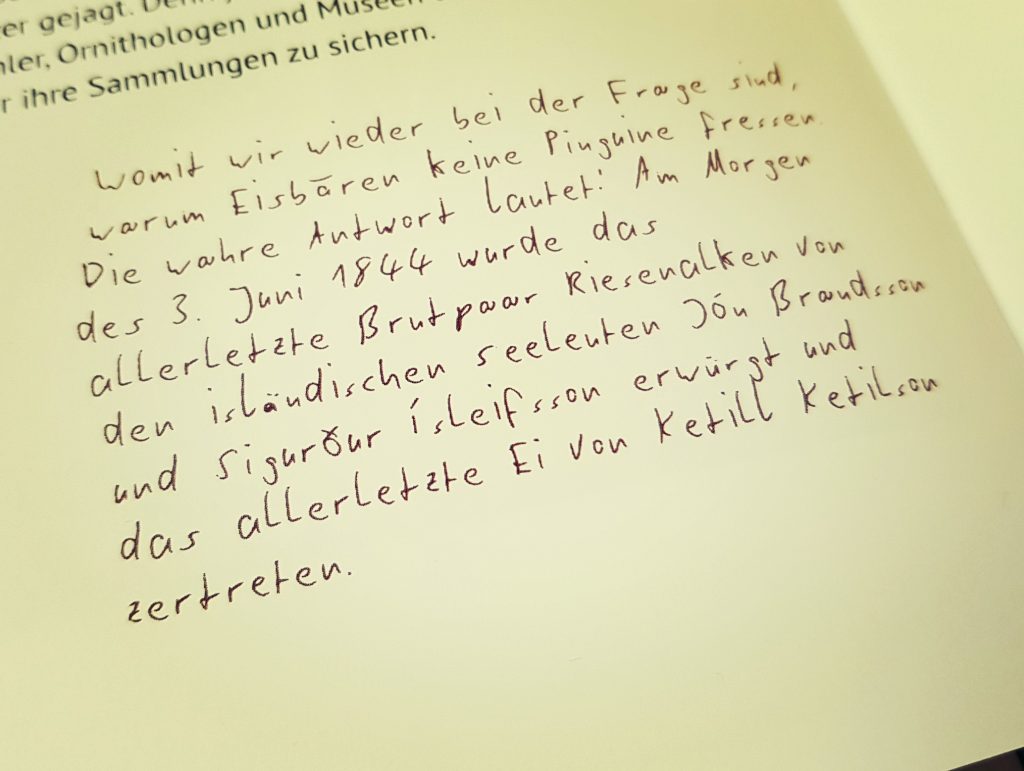 er gejagt.
ler, Ornithologen und Museen
r ihre Sammlungen zu sichern.
womit wir wieder bei der Frage sind,
warum Eisbären keine Pinguine fressen.
Die wahre Antwort lautet: Am Morgen
des 3. Juni 1844 wurde das
allerletzte Brutpaar Riesenalken von
den isländischen Seeleuten Jón Brandsson
und Sigurður Ísleifsson erwürgt und
das allerletzte Ei von Ketill Ketilson
zertreten.